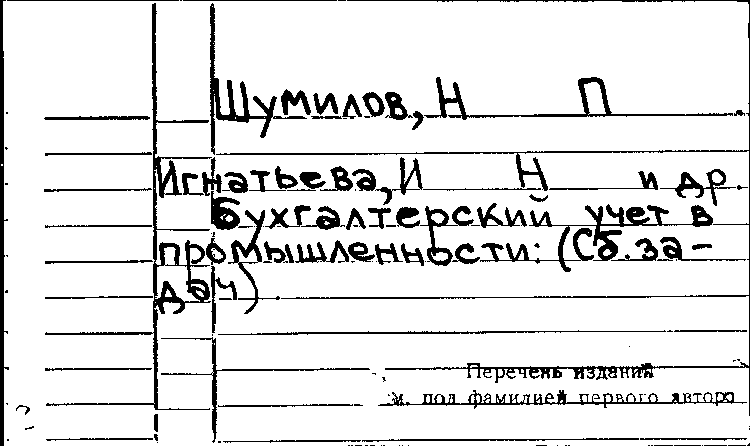 Шумилов, Н П .
Игнатьева, И Н и др.
Бухгалтерский учет в
промышленности: (Сб. за-
дач) .
Перечень изданий
м. под фамилией первого автора